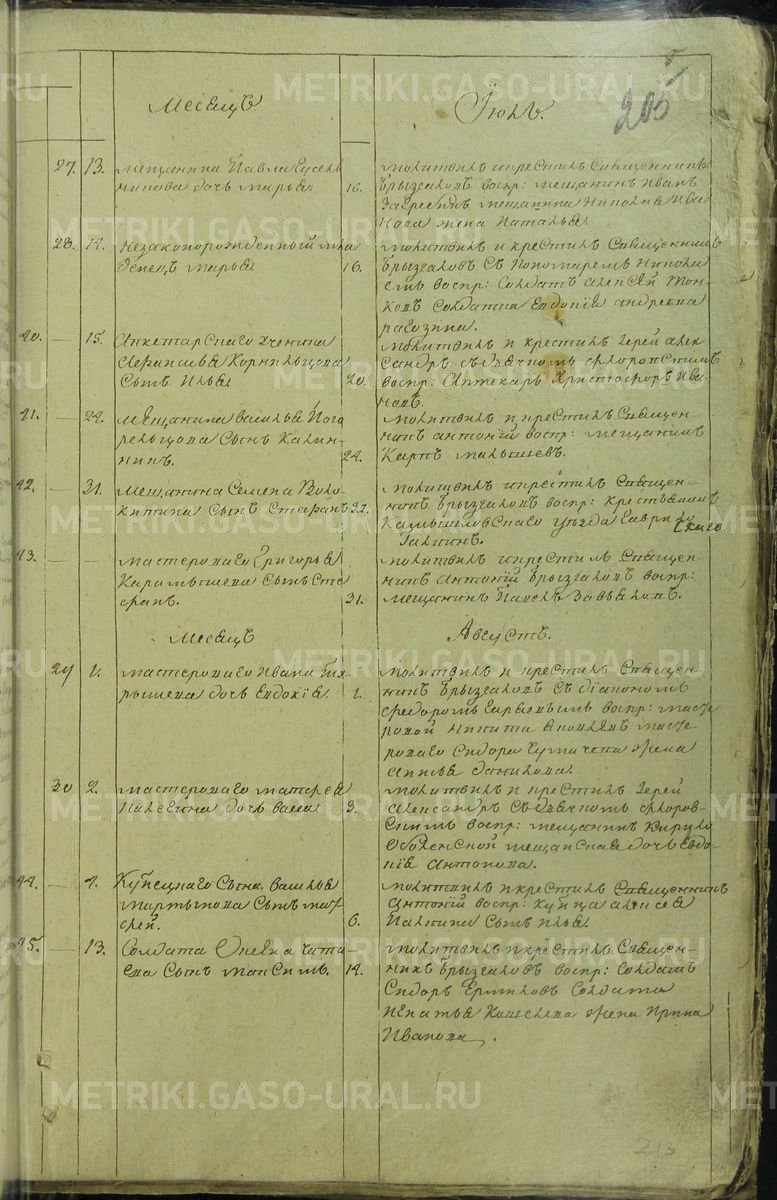 5
205
Месяцъ
Июль.
27. 13. мещанина Павла
дочь марья 16.
молитвилъ и крестилъ Священникъ
Брызгаловъ воспр: мещанинъ Иванъ
мещанина Николая Ива
жена Наталья
28. 14. незаконорожденный мла
денецъ марья 16.
молитвилъ и крестилъ Священникъ
Брызгаловъ съ Пономаремъ Никола
емъ воспр: Солдатъ алексей
Солдатка Евдокия андреева
рагозина.
20. — 15. Аптекарскаго Ученика
Корнильцова
Сынъ Илья 20.
молитвилъ и крестилъ Iерей алек
сандръ съ дьячкомъ флоровскимъ
воспр: Аптекарь Христофоръ Ива
новъ.
21. — 24. Мещанина василья Пого
рельцова Сынъ Калин-
никъ. 24.
молитвилъ и крестилъ Священ-
никъ антонiй воспр: мещанинъ
Карпъ малышевъ.
22. — 31. Мещанина Семена Воло
китина Сынъ Стефанъ 31.
молитвилъ и крестилъ Священ-
никъ Брызгаловъ воспр: крестьянинъ
Камышловскаго уезда Гаврило
Галкинъ.
23. — мастероваго Григорья
Карамышева Сынъ Сте
фанъ. 31.
молитвилъ и крестилъ Священ-
никъ Антонiй Брызгаловъ воспр:
мещанинъ Павелъ Завьяловъ.
Месяцъ
Августъ.
29 1. мастероваго Ивана
дочь Евдокiя. 1.
молитвилъ и крестилъ Священ
никъ Брызгаловъ съ дiакономъ
федоромъ воспр: масте
ровой Никита Яковлевъ масте
роваго Сидора Чумачева жена
Анисья данилова.
30 2. мастероваго матфея
Налегина дочь васса 3.
молитвилъ и крестилъ Iерей
Александръ съ дьячкомъ флоров-
скимъ воспр: мещанинъ Кирило
Оболенской мещанская дочь Евдо
кiя Антонова.
24. — 4. Купецкаго Сына василья
мартынова Сынъ мат
фей. 6.
молитвилъ и крестилъ Священникъ
Антонiй воспр: купца алексея
Сынъ Илья
25. — 13. Солдата
Сынъ максимъ. 14.
молитвилъ и крестилъ Священ-
никъ Брызгаловъ воспр: Солдатъ
Сидоръ Ермиловъ Солдата
Игнатья Кошелева жена Ирина
Иванова.
213
METRIKI.GASO-URAL.RU